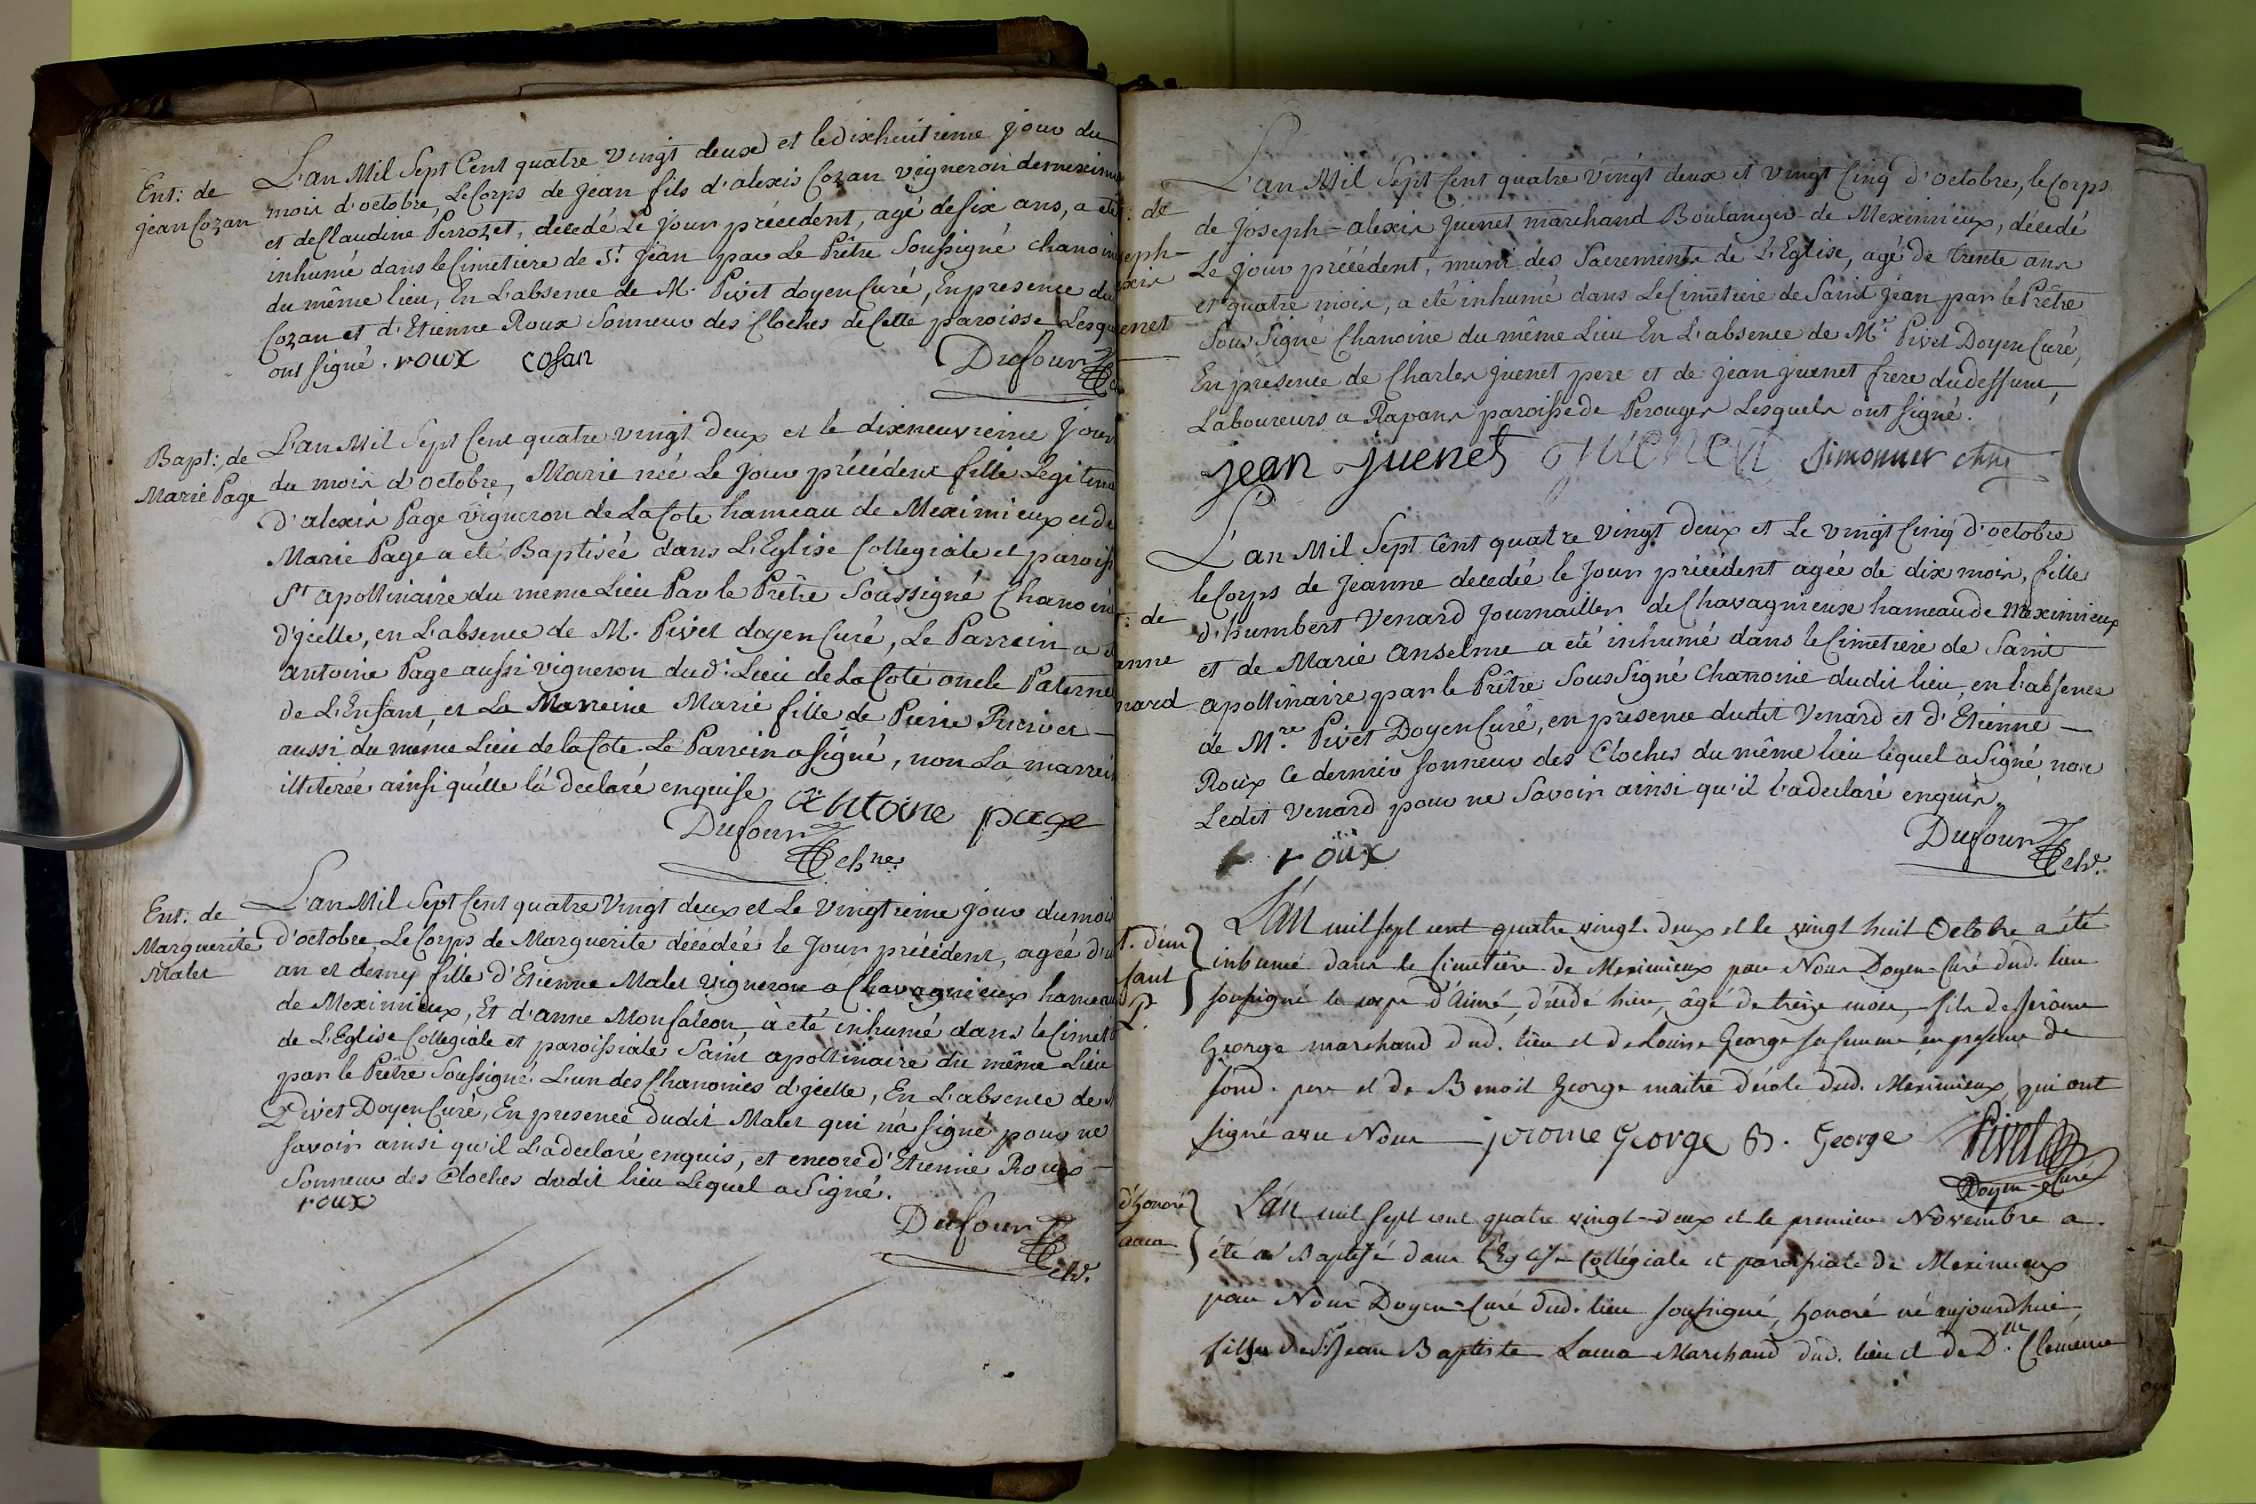 Ent: de
jean Cozan
L'an Mil Sept Cent quatre vingt deux et le dixhuitieme jour du
mois d'octobre, Le Corps de jean fils d'alexis Cozan vigneron de mexim
et de Claudine Perrozet, decedé Le jour précedent, agé de six ans, a eté
inhumé dans le Cimetiere de St. jean par Le Prêtre Soussigné chanoin
du même lieu, En L'absence de M. Pivet doyen Curé, En presence du
Cozan et d'Etienne Roux Sonneur des Cloches de Cette paroisse Lesqu
ont signé. roux cosan
Dufour
Bapt: de
Marie Page
L'an Mil Sept Cent quatre vingt deux et le dixneuvieme Jour
du mois d'octobre, Marie née Le jour précédent fille Légitim
d'alexis Page vigneron de La Cote hameau de Meximieux et de
Marie Page a eté Baptisée dans L'Eglise Collegiale et paroiss
St apollinaire du meme Lieu Par le Prêtre Soussigné Chanoin
d'jcelle, en L'absence de M. Pivet doyen Curé, Le Parrein a é
antoine Page aussi vigneron dud. Lieu de La Cote oncle Paterne
de L'Enfant, et La Marreine Marie fille de Pierre Perrier
aussi du même Lieu de la Cote. Le Parrein a signé, non La marrei
illiterée ainsi qu'elle l'a declaré enquise antoine page
Dufour
chne.
Ent: de
Marguerite
Malet
L'an Mil Sept Cent quatre Vingt deux et Le Vingtieme jour du moi
d'octobre, Le Corps de Marguerite décédée le Jour précédent, agée d'u
an et demy fille d'Etienne Malet vigneron a Chavagnieux hameau
de Meximieux, Et d'anne Monfaleon, a eté inhumé dans le Cimet
de L'Eglise Collégiale et paroissiale Saint apollinaire du même Lieu
par le Prêtre Soussigné. L'un des Chanoines d'jcelle, En L'absence de
Pivet Doyen Curé, En presence dudit Malet qui n'a signé pour ne
savoir ainsi qu'il L'a declaré enquis, et encore d'Etienne Roux
Sonneur des Cloches dudit lieu Lequel a Signé.
roux
Dufour
chne.
: de
seph-
exis
enet
L'an Mil Sept Cent quatre vingt deux et vingt Cinq d'octobre, le Corps
de Joseph-alexis juenet marchand Boulanger de Meximieux, décedé
Le jour précédent, muni des Sacrements de L'Eglise, agé de trente ans
et quatre mois, a eté inhumé dans Le Cimetiere de Saint jean par le Prêtre
Sous Signé Chanoine du même Lieu En L'absence de Mr. Pivet Doyen Curé,
En presence de Charles juenet pere et de jean juenet frere du deffunt,
Laboureurs a Rapans paroisse de Perouges Lesquels ont signé.
jean juenet juenet Simonnet chne
: de
anne
nard
L'an Mil Sept Cent quatre vingt deux et Le vingt Cinq d'octobre
le Corps de Jeanne decedée le Jour précédent agée de dix mois, fille
d'humbert Venard Journaillier de Chavagnieux hameau de Meximieux
et de Marie Anselme a eté inhumé dans le Cimetiere de Saint
apollinaire par le Prêtre Sous Signé Chanoine dudit lieu, en l'absence
de Mre. Pivet Doyen Curé, en presence dudit Venard et d'Etienne
Roux Ce dernier sonneur des Cloches du même lieu lequel a Signé non
Ledit Venard pour ne Savoir ainsi qu'il l'a declaré enquis,
roux
Dufour
chne.
t. d'un
fant
P.
L'an mil sept cent quatre vingt-deux et le vingt huit Octobre a été
inhumé dans le Cimetière de Meximieux par Nous Doyen-Curé dud. lieu
soussigné le corps d'Aimé, décédé hier, âgé de treize mois, fils de Jerôme
George marchand dud. lieu et de Louise George sa femme, en presence de
sond. pere et de Benoit George maitre d'école dud. Meximieux, qui ont
signé avec Nous jerome George B. George Pivet
Doyen-Curé
d'honoré
acua
L'an mil sept cent quatre vingt-deux et le premier Novembre a
été a Baptisé dans l'Eglise Collégiale et paroissiale de Meximieux
par Nous Doyen-Curé dud. lieu soussigné, honoré né aujourdhui
fils de Sr. Jean Baptiste Lacua Marchand dud. lieu et de Dlle. Clemence